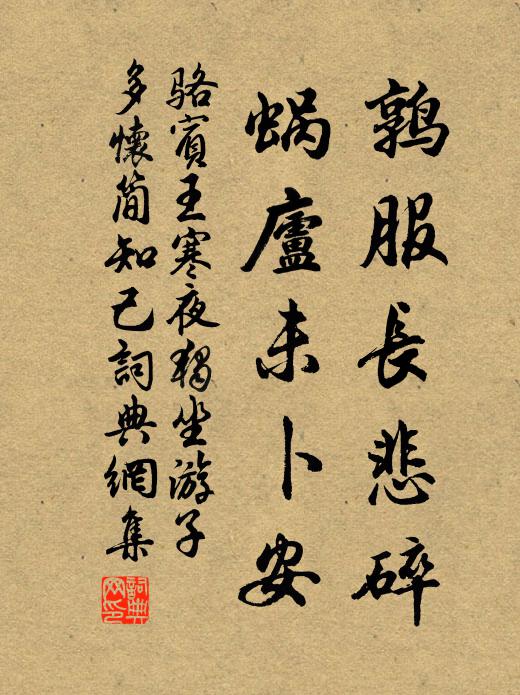 鶉服長悲碎
蝸廬未卜安
駱賓王寒夜獨坐游子
多懷簡知己詞典網集
詞典
网印